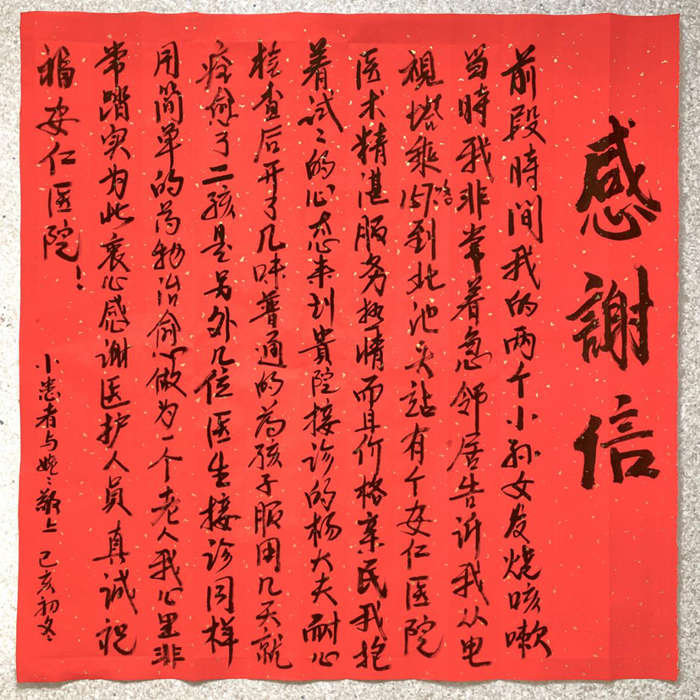 感謝信
前段時间我的两个小孙女发烧咳嗽
当時我非常着急邻居告诉我从电
視塔乘157路到北池头站有个安仁医院
医术精湛服务热情而且价格亲民我抱
着试试的心态来到貴院接诊的杨大夫耐心
检查后开了几味普通的药孩子服用几天就
痊愈了二孩是另外几位医生接诊同样
用简单的药物治愈做为一个老人我心里非
常踏实为此衷心感谢医护人員真诚祝
福安仁医院！
小患者与姥姥敬上 己亥初冬